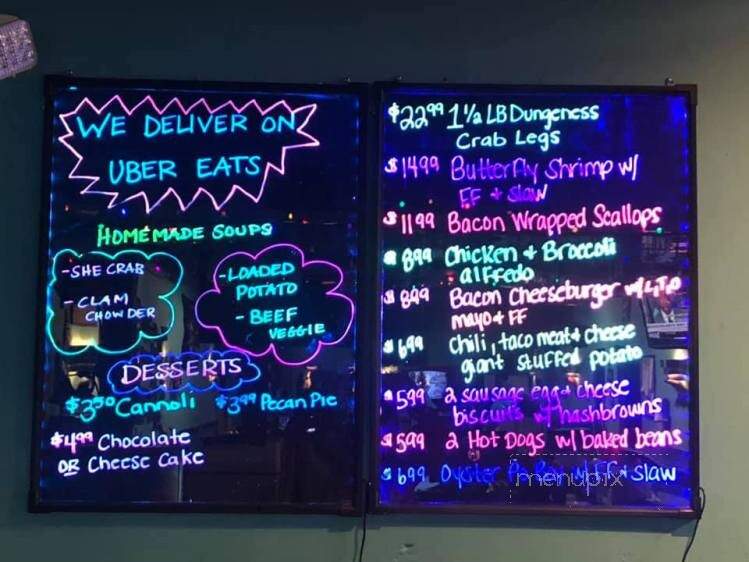 WE DELIVER ON
UBER EATS
HOMEMADE SOUPS
- SHE CRAB
- CLAM
CHOWDER
- LOADED
POTATO
- BEEF
VEGGIE
DESSERTS
$3.50 Cannoli
$3.99 Pecan Pie
$4.99 Chocolate
OR Cheese Cake
$22.99 1 1/2 LB Dungeness
Crab Legs
$14.99 Butterfly Shrimp w/
FF + slaw
$11.99 Bacon Wrapped Scallops
$8.99 Chicken + Broccoli
alffedo
$8.99 Bacon Cheeseburger w/L,T,O
mayo + FF
$6.99 Chili, taco meat + cheese
giant stuffed potato
$5.99 2 sausage egg + cheese
biscuits w/ hashbrowns
$5.99 2 Hot Dogs w/ baked beans
$6.99 Oyster Po Boy w/ FF + slaw
menupix